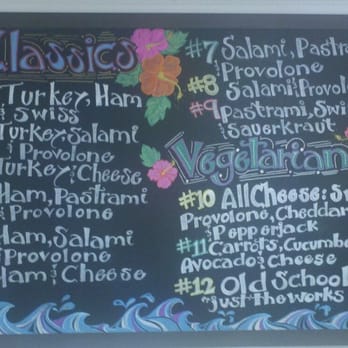 Classics
Turkey, Ham
& Swiss
Turkey, Salami
& Provolone
Turkey & Cheese
Ham, Pastrami
& Provolone
Ham, Salami
& Provolone
Ham & Cheese
#7 Salami, Pastra
& Provolone
#8 Salami & Provol
#9 Pastrami, Swi
& Sauerkraut
Vegetarian
#10 All Cheese: S
Provolone, Cheddar
& Pepperjack
#11 Carrots, Cucumbe
Avocado & Cheese
#12 Old School
"just the works